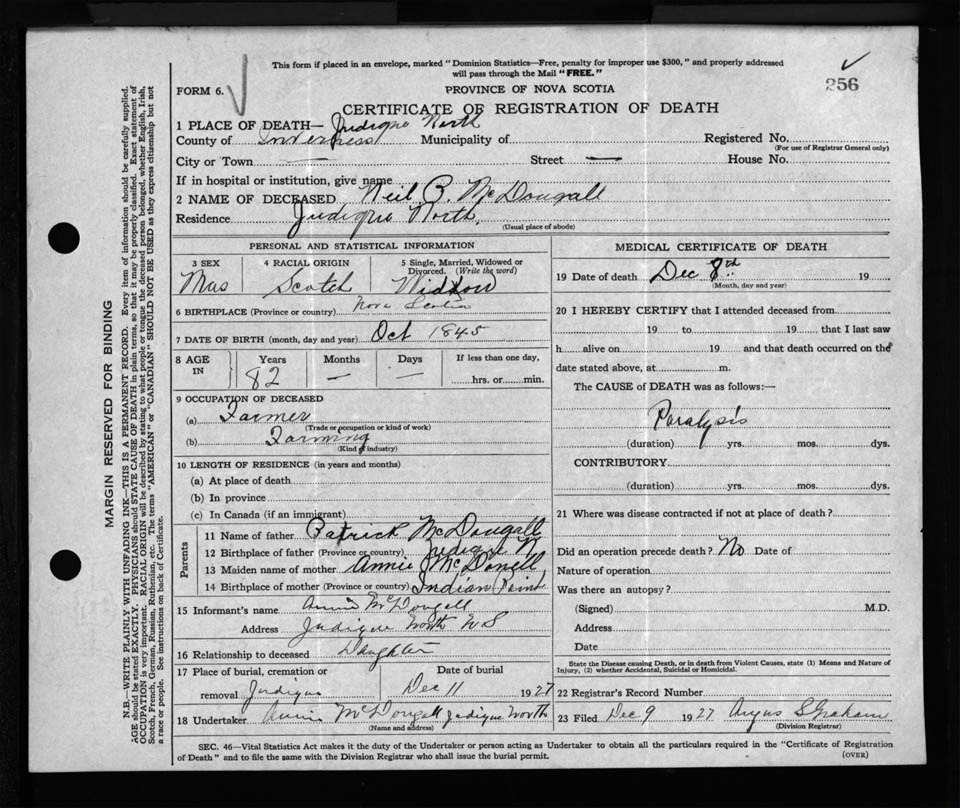 This form if placed in an envelope, marked "Dominion Statistics—Free, penalty for improper use $300," and properly addressed
will pass through the Mail "FREE."
256
FORM 6.
PROVINCE OF NOVA SCOTIA
CERTIFICATE OF REGISTRATION OF DEATH
1 PLACE OF DEATH— Judique North
County of Inverness Municipality of Registered No.
(For use of Registrar General only)
City or Town — Street — House No.
If in hospital or institution, give name
2 NAME OF DECEASED Neil P. McDougall
Residence Judique North,
(Usual place of abode)
PERSONAL AND STATISTICAL INFORMATION
3 SEX 4 RACIAL ORIGIN 5 Single, Married, Widowed or
Divorced. (Write the word)
Mas Scotch Widdow
6 BIRTHPLACE (Province or country) Nova Scotia
7 DATE OF BIRTH (month, day and year) Oct 1845
8 AGE IN Years Months Days If less than one day,
82 — — hrs. or min.
9 OCCUPATION OF DECEASED
(a) Farmer
(Trade or occupation or kind of work)
(b) Farming
(Kind of industry)
10 LENGTH OF RESIDENCE (in years and months)
(a) At place of death
(b) In province
(c) In Canada (if an immigrant)
Parents
11 Name of father Patrick McDougall
12 Birthplace of father (Province or country) Judique N
13 Maiden name of mother Annie McDonell
14 Birthplace of mother (Province or country) Indian Point
15 Informant's name Annie McDougall
Address Judique North N S
16 Relationship to deceased Daughter
17 Place of burial, cremation or Date of burial
removal Judique Dec 11 1927
18 Undertaker Annie McDougall Judique North
(Name and address)
MEDICAL CERTIFICATE OF DEATH
19 Date of death Dec 8th 19
(Month, day and year)
20 I HEREBY CERTIFY that I attended deceased from
19 to 19 that I last saw
h alive on 19 and that death occurred on the
date stated above, at m.
The CAUSE of DEATH was as follows:—
Paralysis
(duration) yrs. mos. dys.
CONTRIBUTORY
(duration) yrs. mos. dys.
21 Where was disease contracted if not at place of death?
Did an operation precede death? No Date of
Nature of operation
Was there an autopsy?
(Signed) M.D.
Address
Date
State the Disease causing Death, or in death from Violent Causes, state (1) Means and Nature of
Injury, (2) whether Accidental, Suicidal or Homicidal.
22 Registrar's Record Number
23 Filed Dec 9 1927 Angus S Graham
(Division Registrar)
SEC. 46—Vital Statistics Act makes it the duty of the Undertaker or person acting as Undertaker to obtain all the particulars required in the "Certificate of Registration
of Death" and to file the same with the Division Registrar who shall issue the burial permit.
(OVER)
MARGIN RESERVED FOR BINDING
N.B.—WRITE PLAINLY WITH UNFADING INK—THIS IS A PERMANENT RECORD. Every item of information should be carefully supplied.
AGE should be stated EXACTLY. PHYSICIANS should STATE CAUSE OF DEATH in plain terms, so that it may be properly classified. Exact statement of
OCCUPATION is very important. RACIAL ORIGIN will be described by stating to what people or tongue the deceased person belonged, whether English, Irish,
Scotch, French, German, Russian, Ruthenian, etc. The terms "AMERICAN" or "CANADIAN" SHOULD NOT BE USED as they express citizenship but not
a race or people. See instructions on back of Certificate.